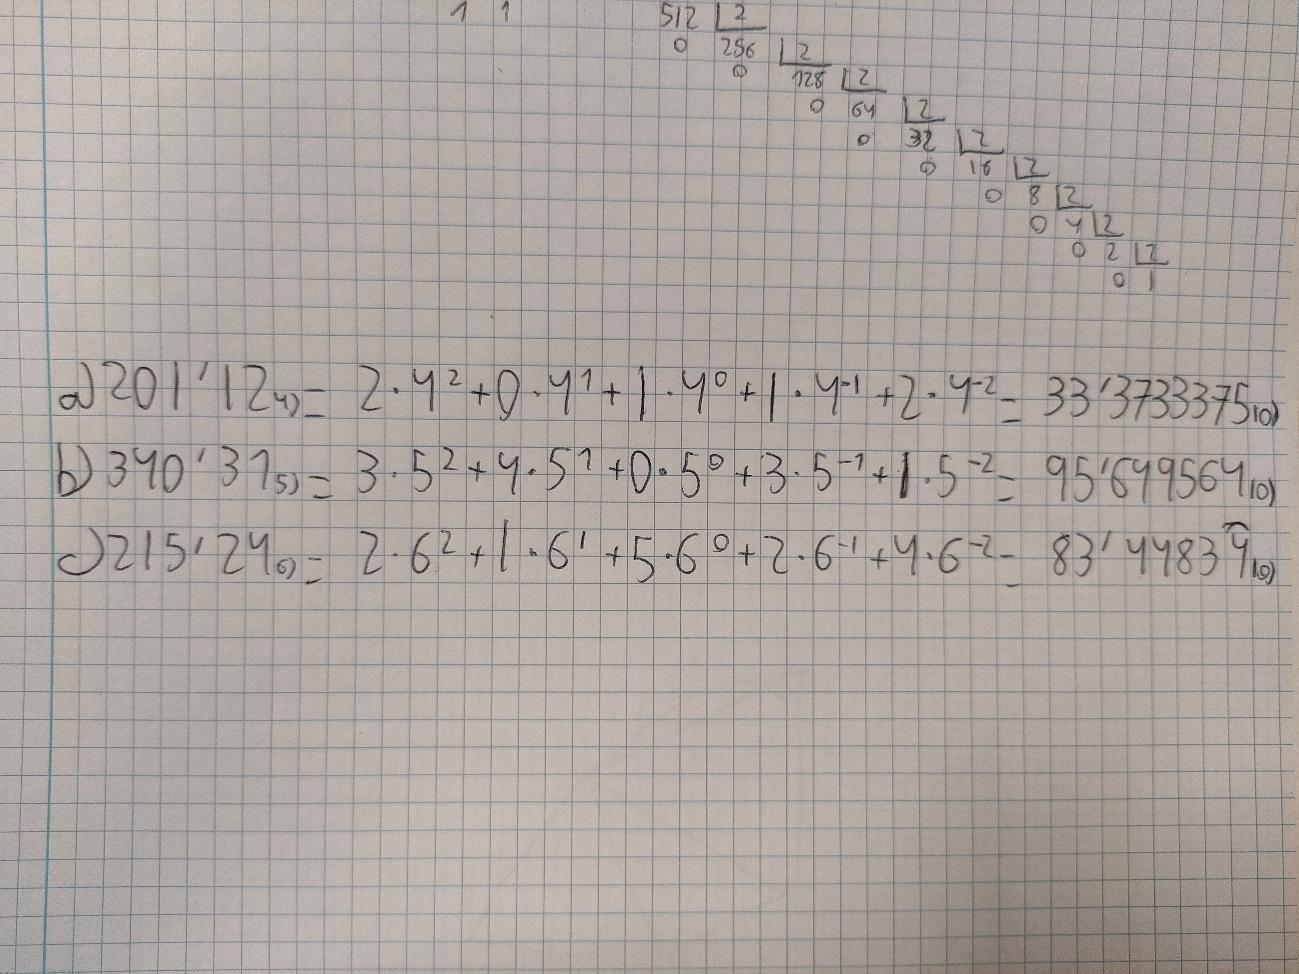 1 1
512 2
0 256 2
0 128 2
0 64 2
0 32 2
0 16 2
0 8 2
0 4 2
0 2 2
0 1
a) 201'12₄₎ = 2·4² + 0·4¹ + 1·4⁰ + 1·4⁻¹ + 2·4⁻² = 33'3733375₁₀₎
b) 340'31₅₎ = 3·5² + 4·5¹ + 0·5⁰ + 3·5⁻¹ + 1·5⁻² = 95'649564₁₀₎
c) 215'24₆₎ = 2·6² + 1·6¹ + 5·6⁰ + 2·6⁻¹ + 4·6⁻² = 83'44834̑₁₀₎